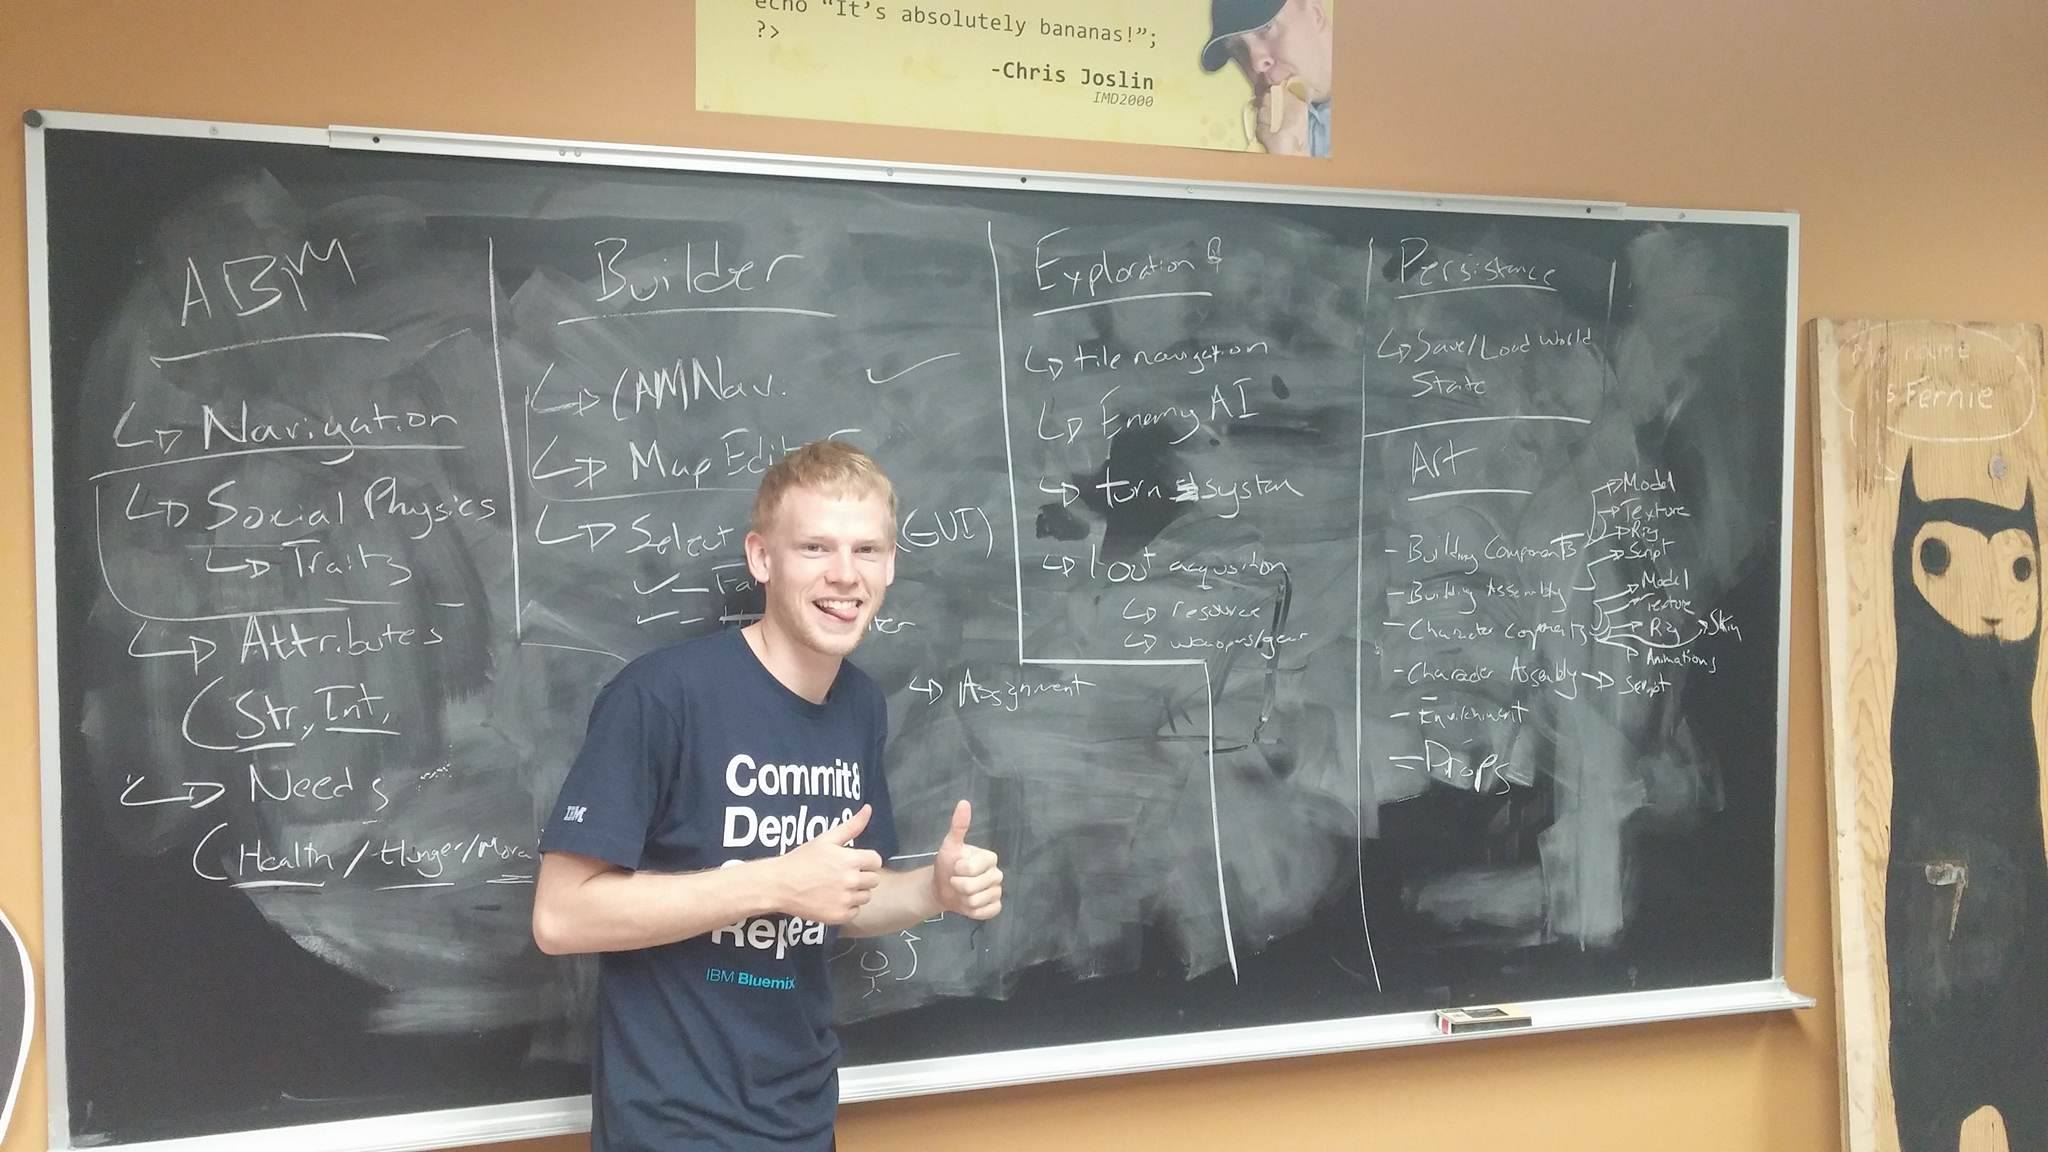 echo “It’s absolutely bananas!”;
?>
-Chris Joslin
IMD2000
ABM
Navigation
Social Physics
Traits
Attributes
(Str, Int,
Needs
(Health / Hunger / Mora
Builder
CAM Nav.
Map Edit
Select (GUI)
Assignment
Exploration
tile navigation
Enemy AI
turn system
loot acqusition
resource
weapons/gear
Persistance
Save/Load World
State
Art
- Building Components
Model
Texture
Rig
Script
- Building Assembly
- Character Coponents
Model
Texture
Rig
Skin
Animations
- Character Assembly
Script
- Envirnment
- Props
name
is Fernie
IBM
Commit&
Deploy&
Repea
IBM Bluemix